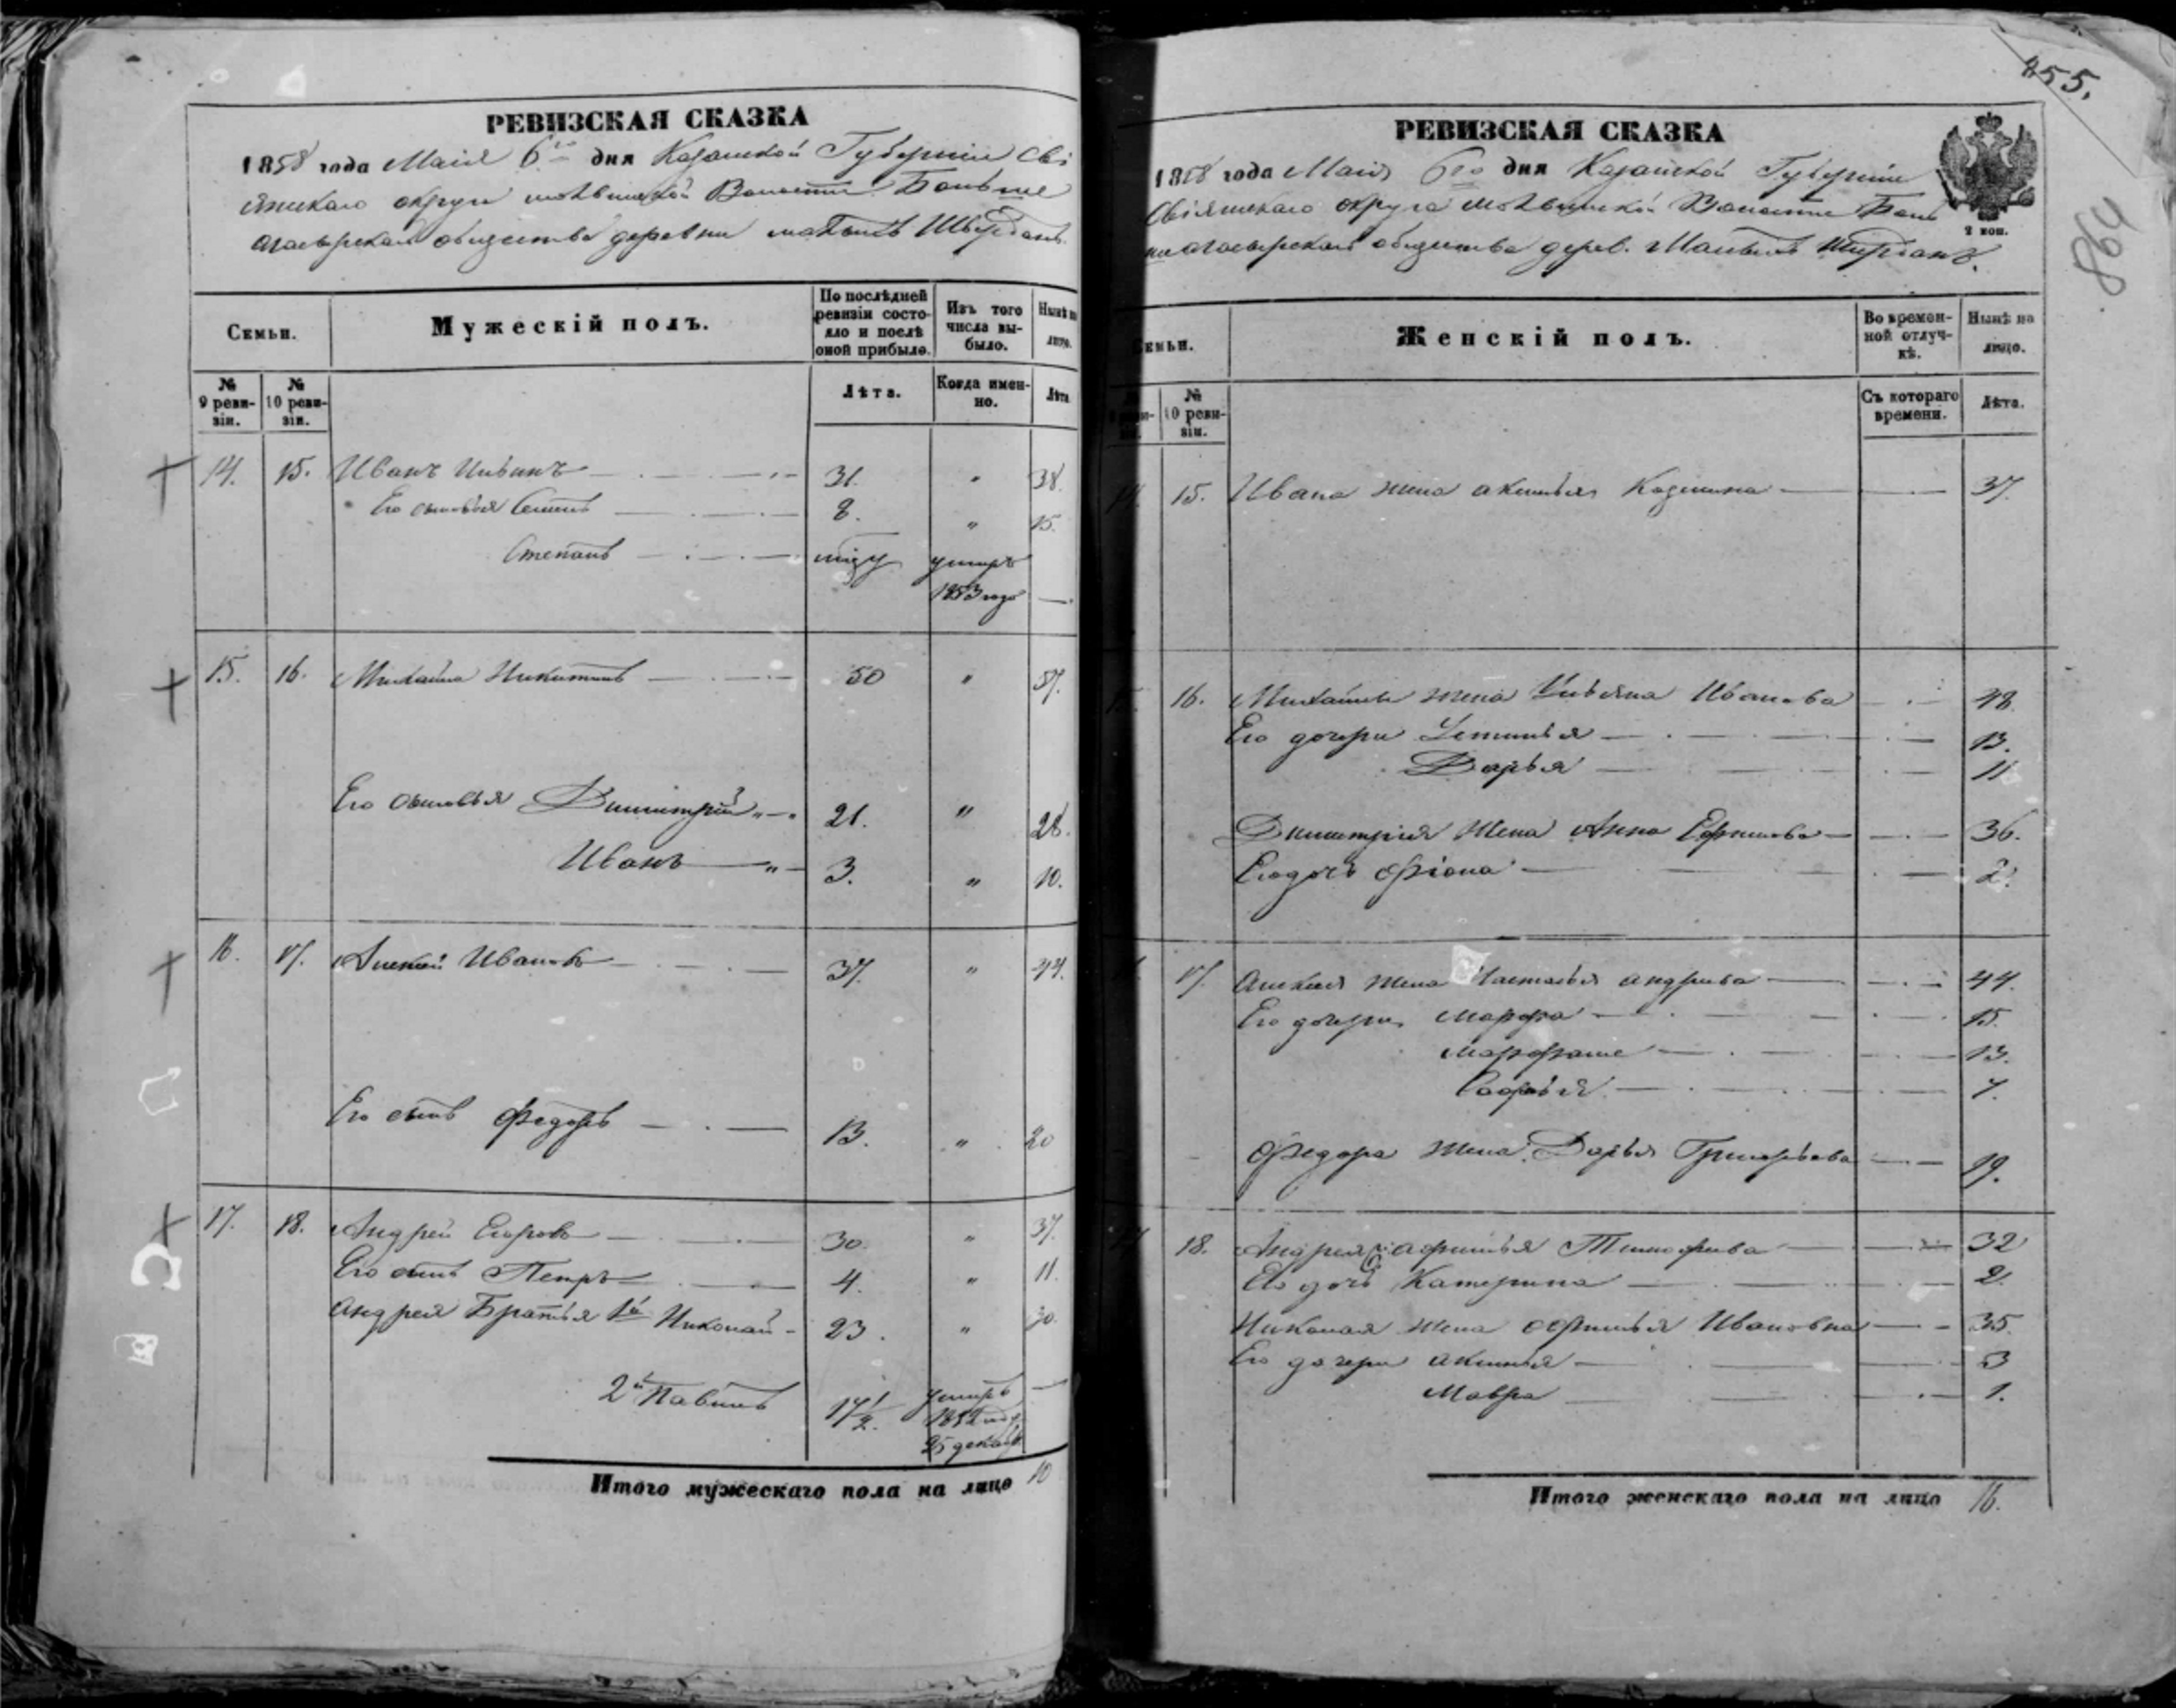 РЕВИЗСКАЯ СКАЗКА
1858 года Маія 6го дня Казанской Губерніи Сві
яжскаго округа Волости Больше
общества деревни
Семьи.
Мужескій полъ.
По послѣдней ревизіи состояло и послѣ оной прибыло.
Изъ того числа выбыло.
Нынѣ на лицо.
№ 9 ревизіи.
№ 10 ревизіи.
Лѣта.
Когда именно.
Лѣта
14. 15. Иванъ 31. " 38.
Его сыновья Семенъ 8. " 15.
Степанъ умеръ
1853 года —
15. 16. Михайла Никитинъ 50 " 57.
Его сыновья Димитрій 21. " 28.
Иванъ 3. " 10.
16. 17. Алексей Ивановъ 37. " 44.
Его сынъ Федоръ 13. " 20
17. 18. Андрей Егоровъ 30. " 37.
Его сынъ Петръ 4. " 11.
Андрея Братья 1й Николай 23. " 30.
2й Павелъ 17 1/2. умеръ —
25 декаб.
Итого мужескаго пола на лицо 10
855.
864
РЕВИЗСКАЯ СКАЗКА
1858 года Маія 6го дня Казанской Губерніи
Свіяжскаго округа Волости Боль
общества дерев.
2 коп.
Семьи.
Женскій полъ.
Во временной отлучкѣ.
Нынѣ на лицо.
№ 10 ревизіи.
Съ котораго времени.
Лѣта.
14. 15. Ивана жена Козмина 37.
15. 16. Михайлы жена Ульяна Иванова 48
Его дочери Устинья 13.
Дарья 11
Димитрія жена Анна Ефимова 36.
Его дочь 2.
17. Алексея жена Настасья Андреева 44.
Его дочери Марфа 15.
13.
Софья 7.
Федора жена Дарья Григорьева 19.
17 18. Андрея Тимофеева 32
Его дочь Катерина 2.
Николая жена Ивановна 35.
Его дочери 3
Мавра 1.
Итого женскаго пола на лицо 16.